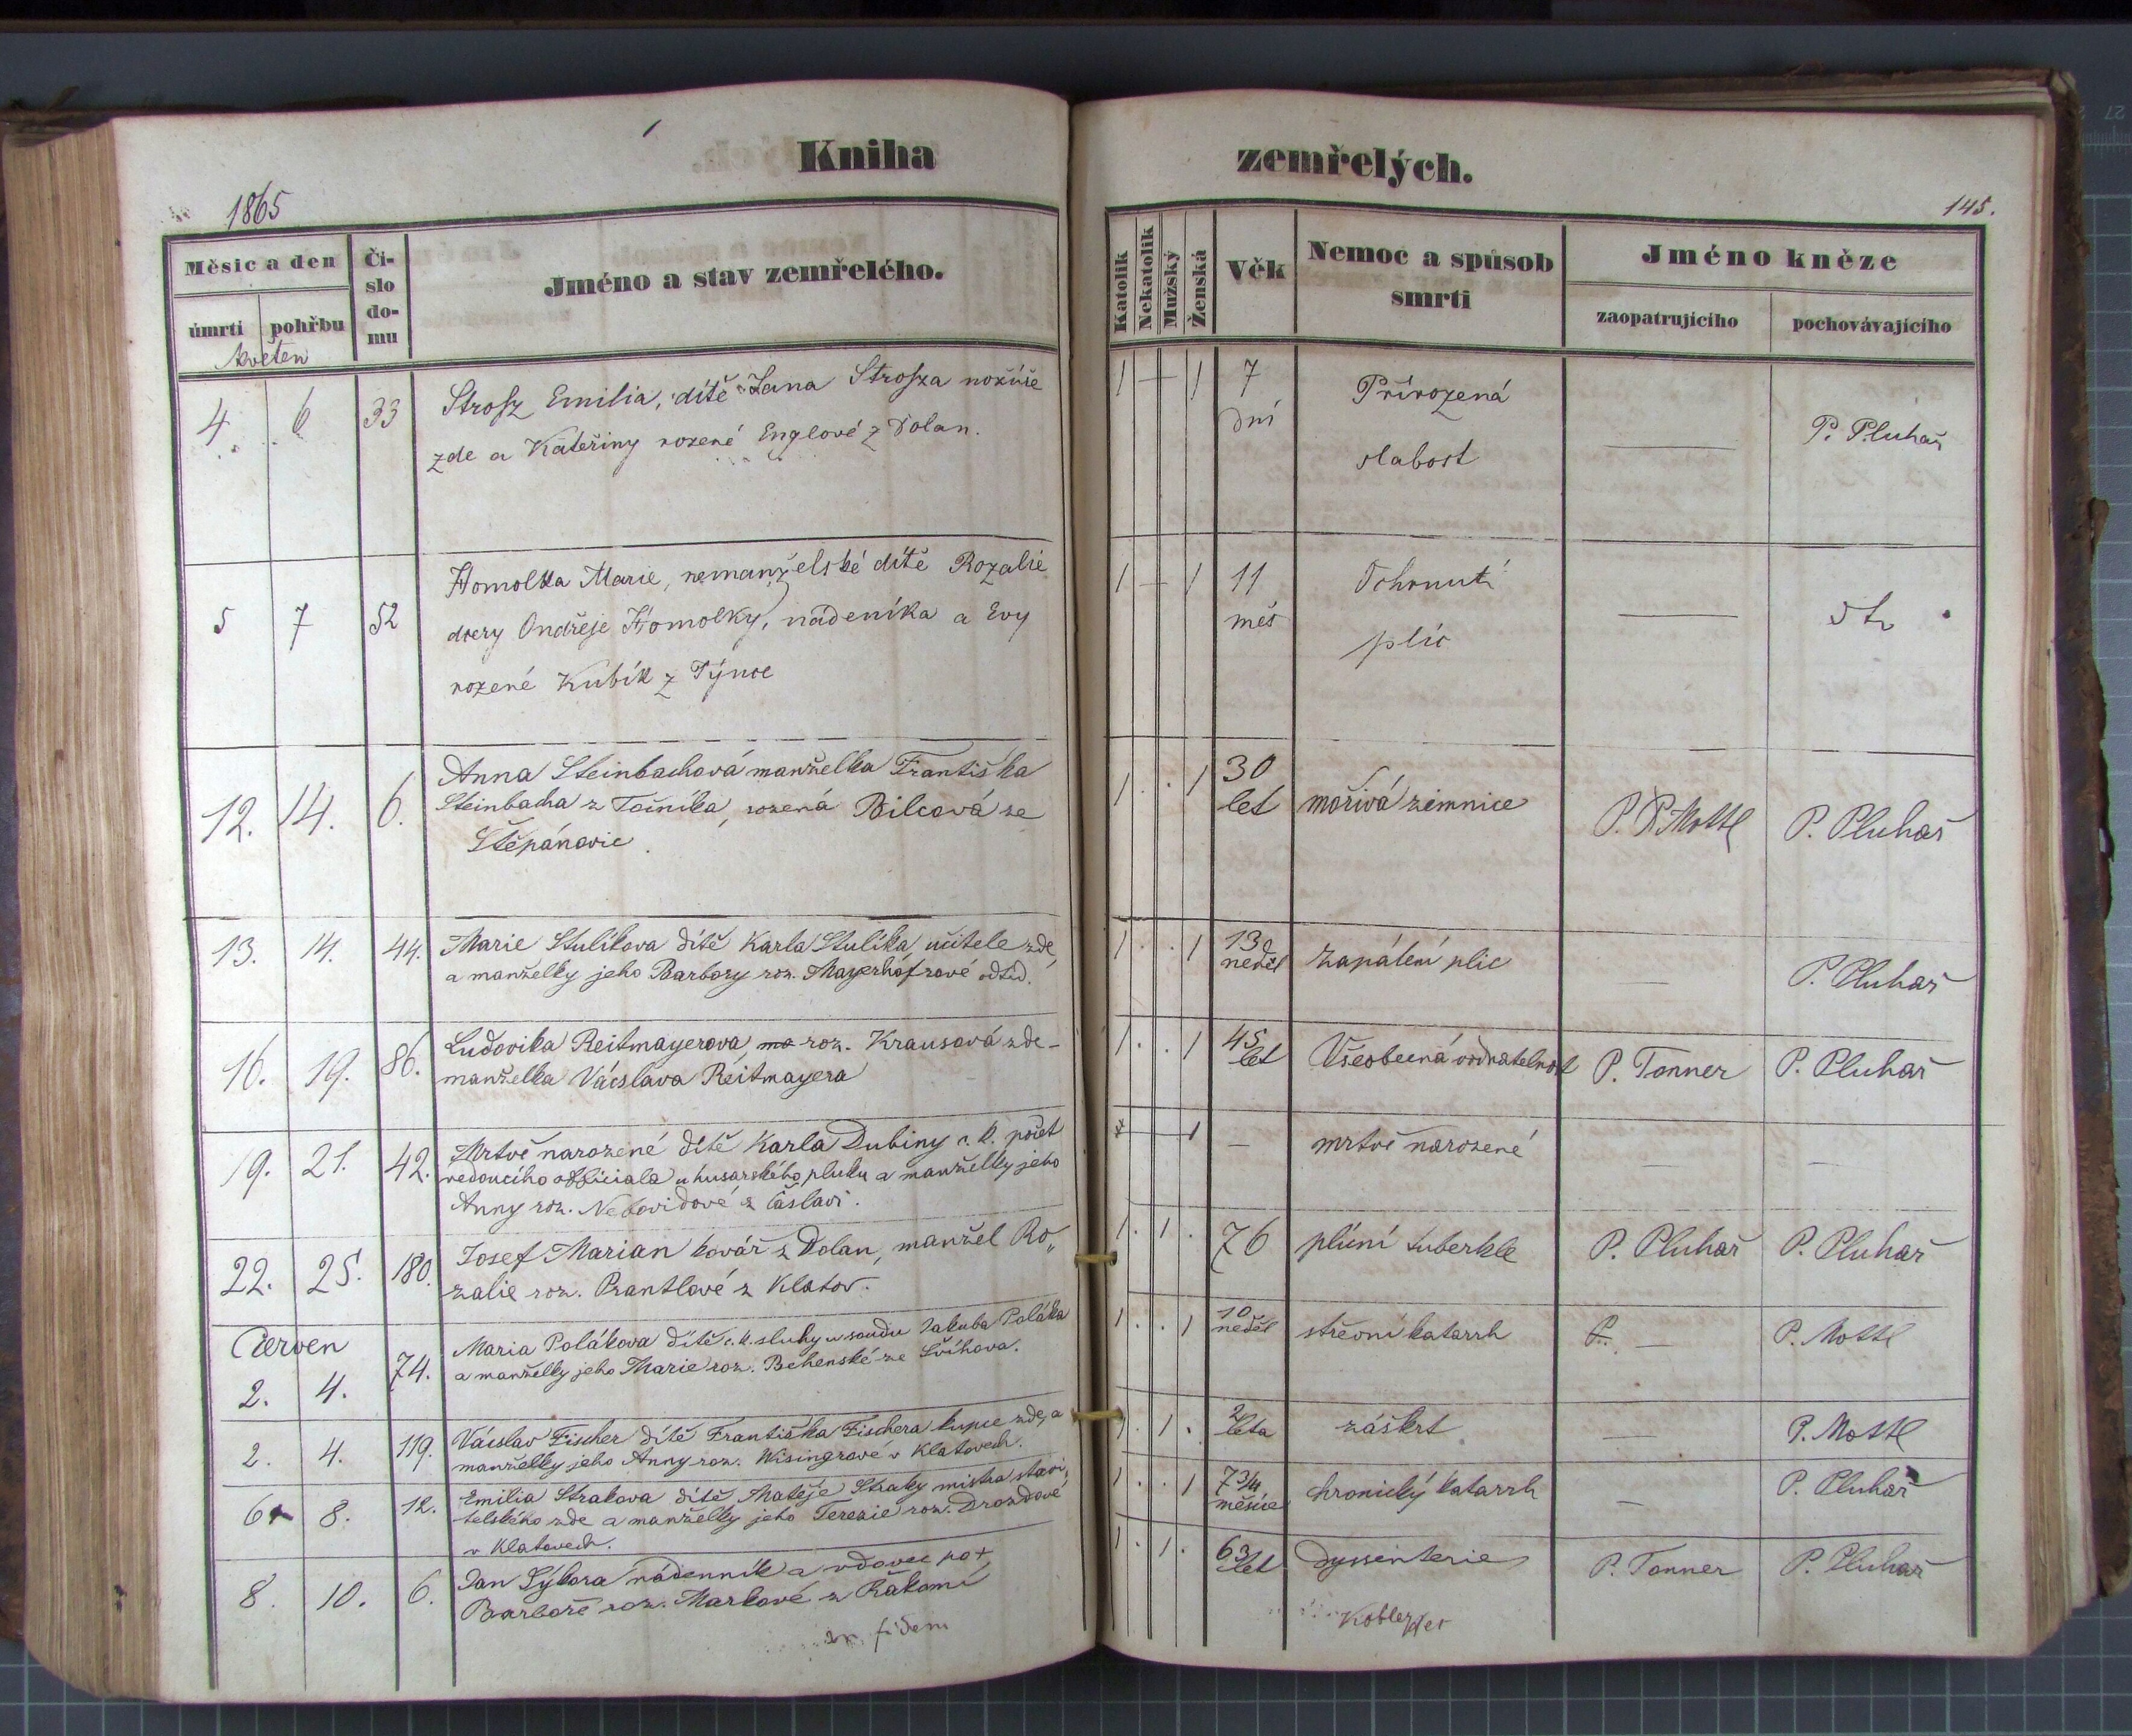 Kniha zemřelých.
1865
145.
Měsíc a den
úmrtí
pohřbu
Čí-
slo
do-
mu
Jméno a stav zemřelého.
Katolík
Nekatolík
Mužský
Ženská
Věk
Nemoc a spůsob
smrti
Jméno kněze
zaopatrujícího
pochovávajícího
květen
4. 6 33 Strosz Emilia, dítě Jana Strosza nožíře 1 — 1 7 Přirozená
zde a Kateřiny rozené Englové z Dolan. dní slabost — P. Pluhař
5 7 52 Homolka Marie, nemanželské dítě Rozalie 1 — 1 11 Ochrnutí
dcery Ondřeje Homolky, nádeníka a Evy měs plic — dto
rozené Kubík z Týnce
12. 14. 6. Anna Steinbachová manželka Františka 1 . . 1 30
Steinbacha z Točníka, rozená Bilcová ze let mořivá zimnice P. Mottl P. Pluhař
Štěpánovic.
13. 14. 44. Marie Stulikova dítě Karla Stulíka učitele zde, 1 . . 1 13 Zapálení plic — P. Pluhař
a manželky jeho Barbory roz. Mayerhöfrové odtud. neděl
16. 19. 86. Ludovika Reitmayerova, ma roz. Krausová zde- 1 . . 1 45 Všeobecná vodnatelnost P. Tonner P. Pluhař
manželka Václava Reitmayera let
19. 21. 42. Mrtvě narozené dítě Karla Dubiny c. k. počet — 1 — mrtvě narozené — —
vedoucího officiala u husarského pluku a manželky jeho
Anny roz. Nebovidové z Čáslavi.
22. 25. 180. Josef Marian kovář z Dolan, manžel Ro„ 1 . 1 . 76 plícní tuberkle P. Pluhař P. Pluhař
zalie roz. Prantlové z Klatov.
Červen
2. 4. 74. Maria Polákova dítě c. k. sluhy u soudu Jakuba Poláka 1 . . 1 10 střevní katarrh P. — P. Mottl
a manželky jeho Marie roz. Behenské ze Švihova. neděl
2. 4. 119. Václav Fischer dítě Františka Fischera kupce zde, a 1 . 1 . 2 záškrt — P. Mottl
manželky jeho Anny roz. Wisingrové v Klatovech. léta
6 8. 12. Emilia Strakova dítě Matěje Straky mistra stavi, 1 . . 1 7 3/4 chronický katarrh — P. Pluhař
telského zde a manželky jeho Terezie roz. Drozdové měsíce
v Klatovech.
8. 10. 6. Jan Sýkora nádenník a vdovec po + 1 . 1 . 63 dyssinterie P. Tonner P. Pluhař
Barboře roz. Markové z Řakomi let
in fidem